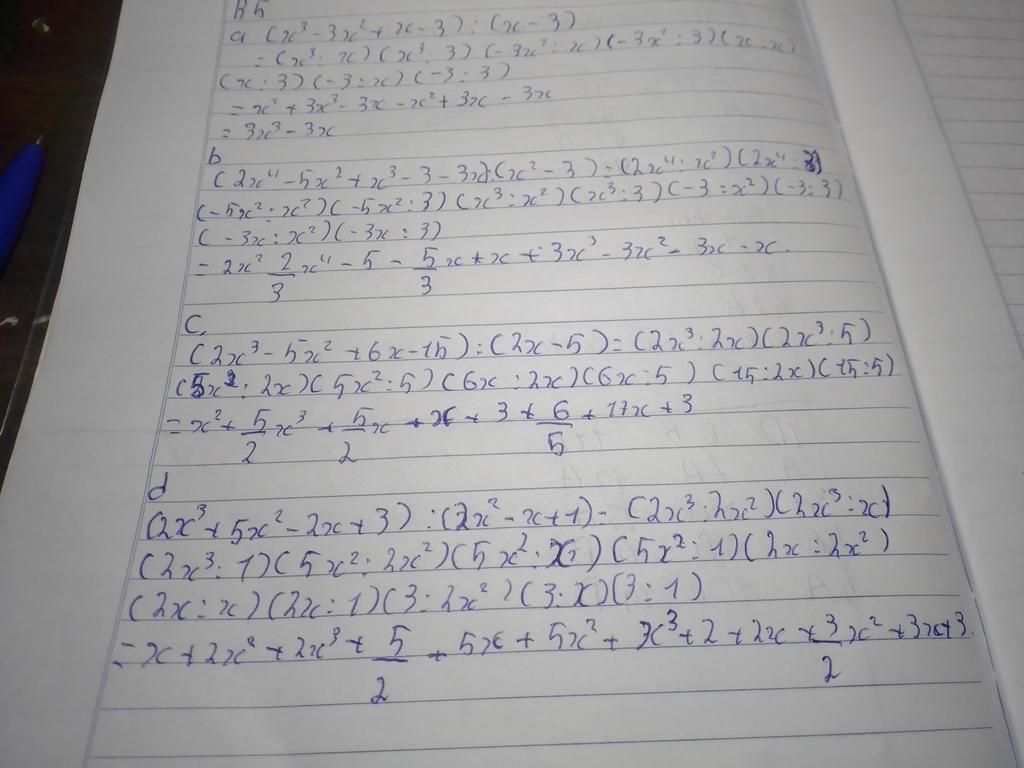 B5
a (x³ - 3x² + x - 3) : (x - 3)
= (x³ : x) (x³ : 3) (-3x² : x) (-3x² : 3) (x : x)
(x : 3) (-3 : x) (-3 : 3)
= x² + 3x³ - 3x - x² + 3x - 3x
= 3x³ - 3x
b
(2x⁴ - 5x² + x³ - 3 - 3x) : (x² - 3) = (2x⁴ : x²) (2x⁴ : 3)
(-5x² : x²) (-5x² : 3) (x³ : x²) (x³ : 3) (-3 : x²) (-3 : 3)
(-3x : x²) (-3x : 3)
= 2x² 2/3 x⁴ - 5 - 5/3 x + x + 3x³ - 3x² - 3x - x.
c,
(2x³ - 5x² + 6x - 15) : (2x - 5) = (2x³ : 2x) (2x³ : 5)
(5x² : 2x) (5x² : 5) (6x : 2x) (6x : 5) (15 : 2x) (15 : 5)
= x² + 5/2 x³ + 5/2 x + x + 3 + 6/5 + 17x + 3
d
(2x³ + 5x² - 2x + 3) : (2x² - x + 1) = (2x³ : 2x²) (2x³ : x)
(2x³ : 1) (5x² : 2x²) (5x² : x) (5x² : 1) (2x : 2x²)
(2x : x) (2x : 1) (3 : 2x²) (3 : x) (3 : 1)
= x + 2x² + 2x³ + 5/2 + 5x + 5x² + x³ + 2 + 2x + 3/2 x² + 3x + 3